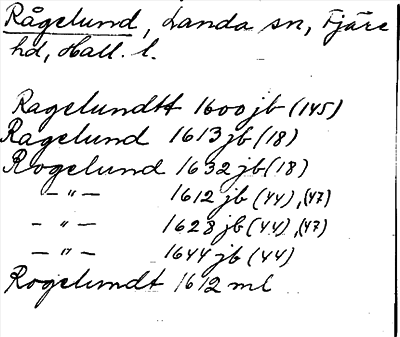 Rågelund, Landa sn, Fjäre
hd, Hall. l.
Ragelundtt 1600 jb (145)
Ragelund 1613 jb (18)
Rogelund 1632 jb (18)
— " — 1612 jb (44), (47)
— " — 1628 jb (44), (47)
— " — 1644 jb (44)
Rogelundt 1612 ml